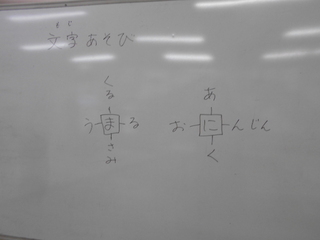 もじ
文字あそび
くる
う ま る
さみ
あ
お に んじん
く